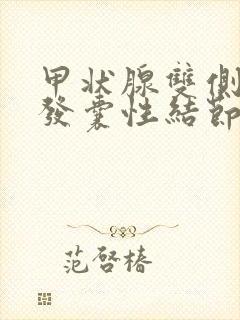 甲状腺雙側
發囊性結節
范啓椿